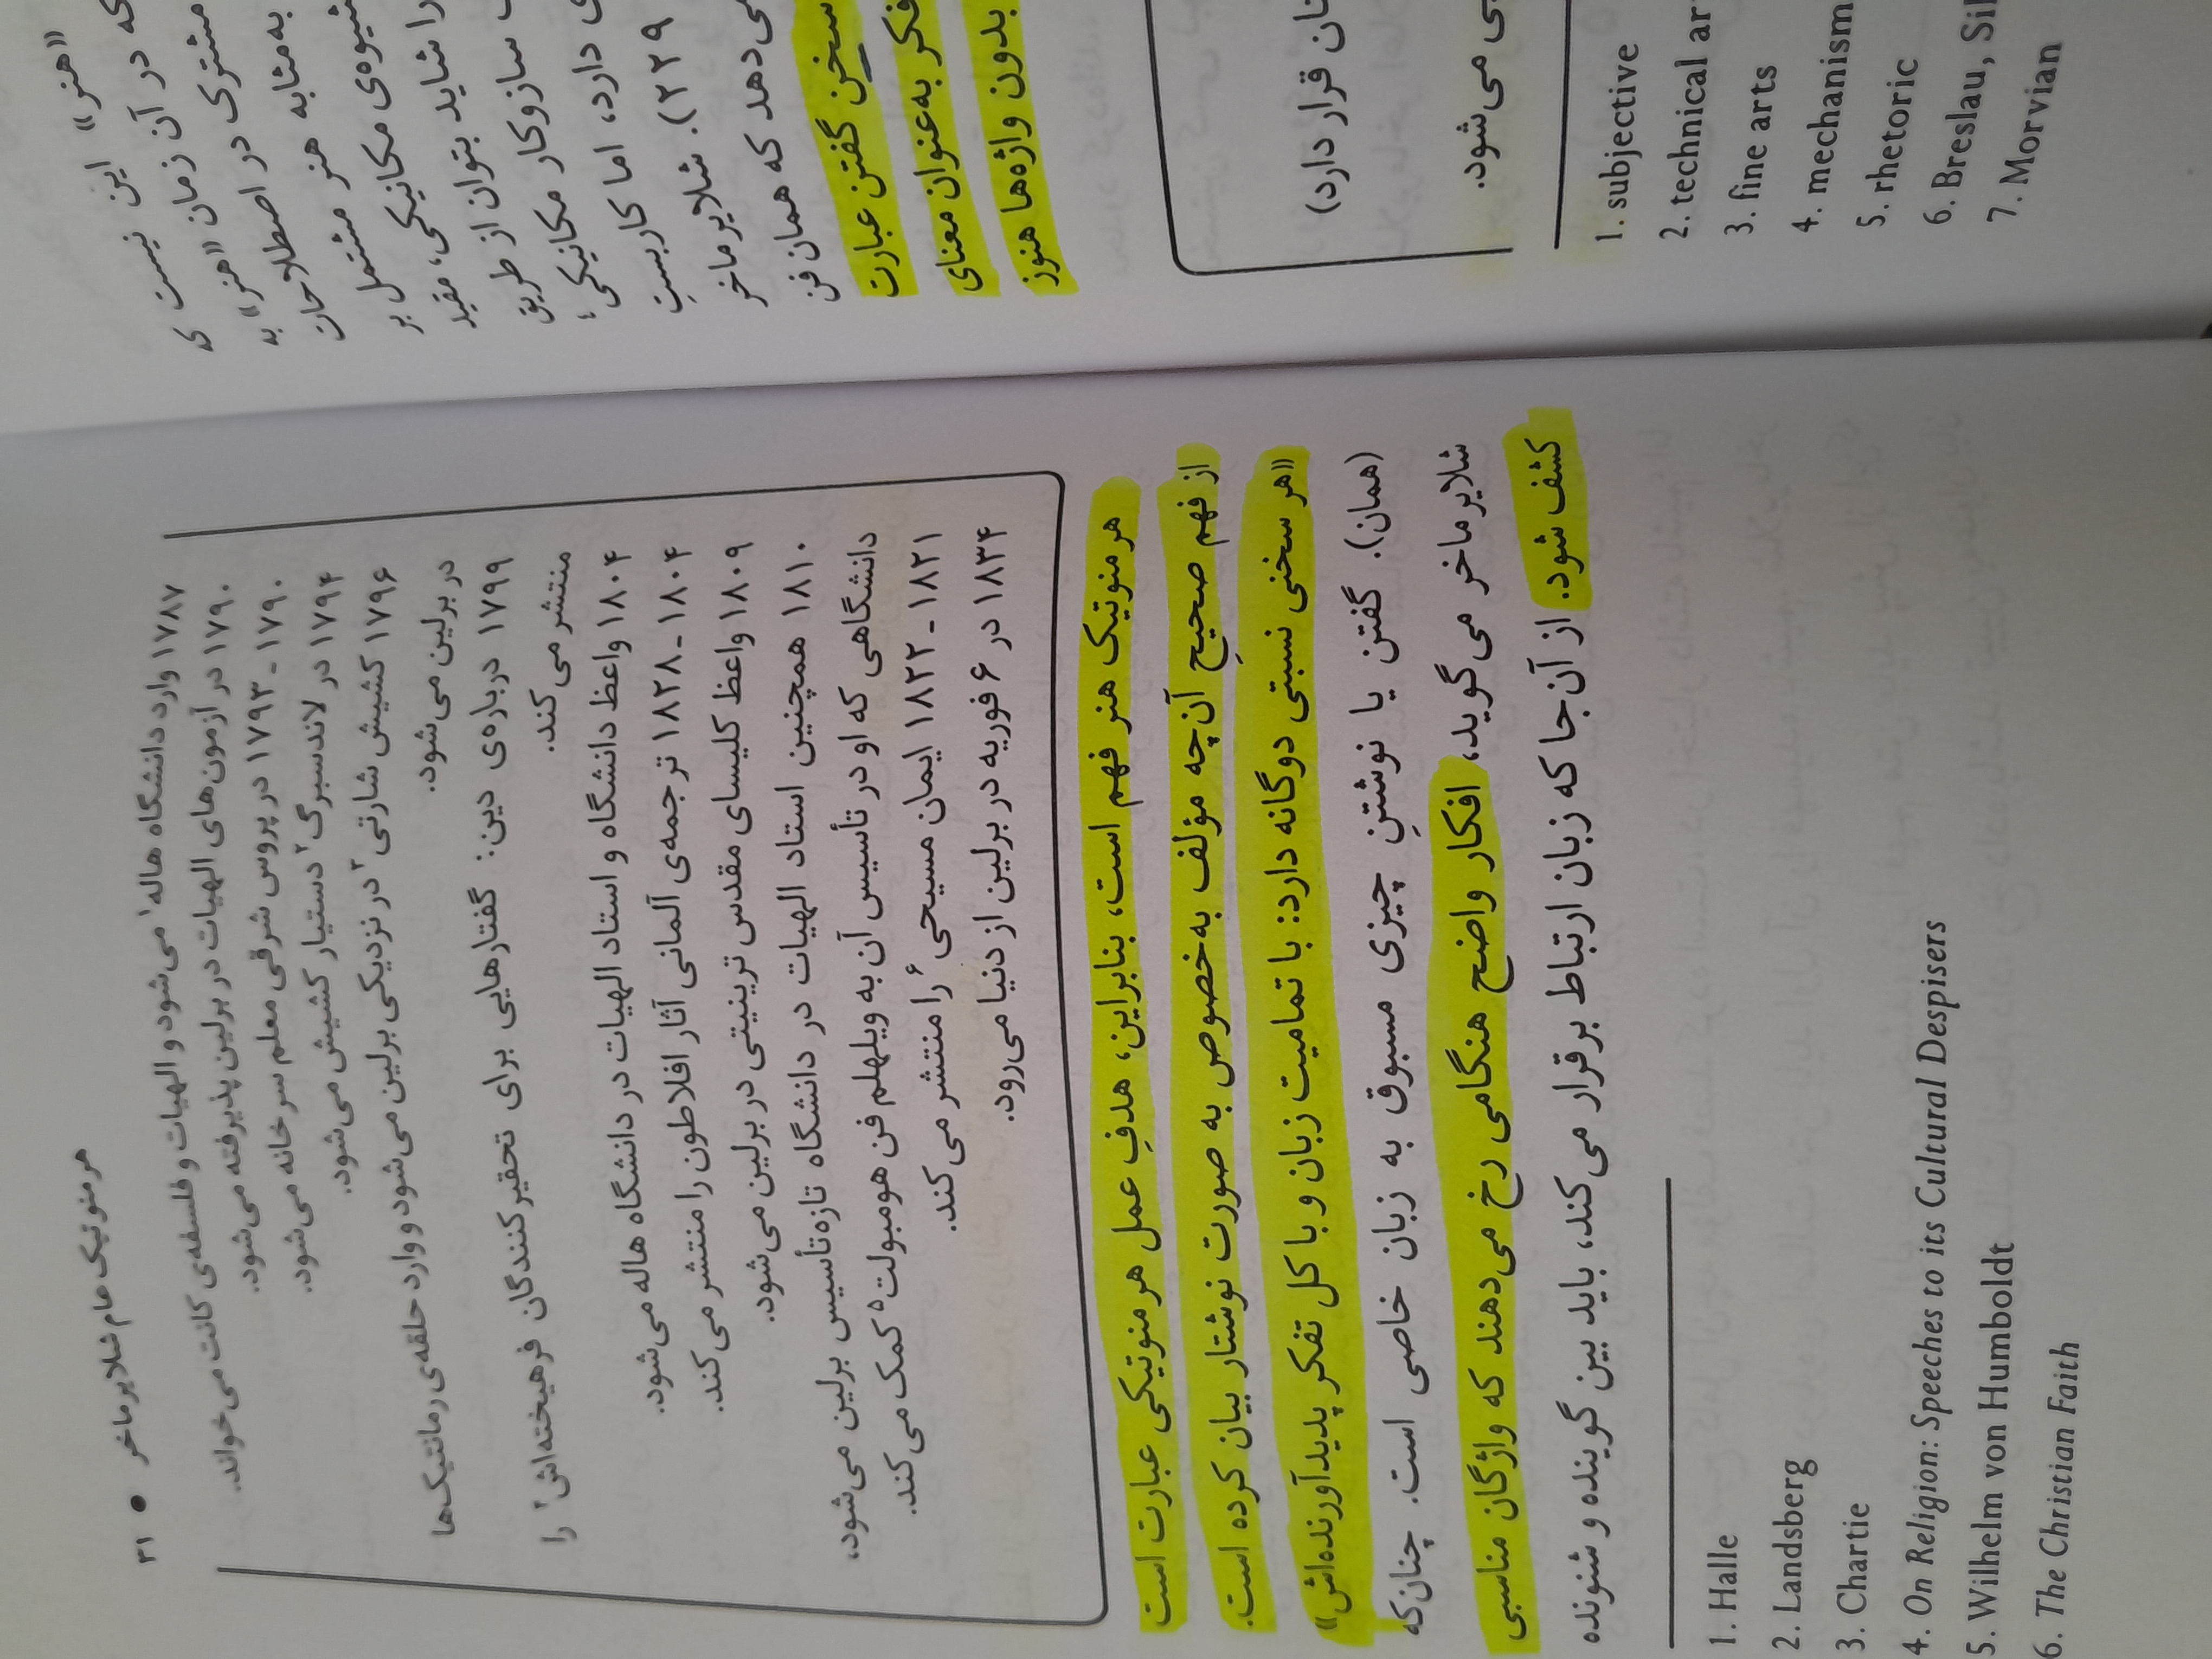 ۳۱ ● هرمنوتیک عام شلایرماخر
۱۷۸۷ وارد دانشگاه هاله¹ می‌شود و الهیات و فلسفه‌ی کانت می‌خواند.
۱۷۹۰ در آزمون‌های الهیات در برلین پذیرفته می‌شود.
۱۷۹۰-۱۷۹۳ در پروس شرقی معلم سرخانه می‌شود.
۱۷۹۴ در لاندسبرگ² دستیار کشیش می‌شود.
۱۷۹۶ کشیش شارتی³ در نزدیکی برلین می‌شود و وارد حلقه‌ی رمانتیک‌ها
در برلین می‌شود.
۱۷۹۹ درباره‌ی دین: گفتارهایی برای تحقیرکنندگان فرهیخته‌اش⁴ را
منتشر می‌کند.
۱۸۰۴ واعظ دانشگاه و استاد الهیات در دانشگاه هاله می‌شود.
۱۸۰۴-۱۸۲۸ ترجمه‌ی آلمانی آثار افلاطون را منتشر می‌کند.
۱۸۰۹ واعظ کلیسای مقدس ترینیتی در برلین می‌شود.
۱۸۱۰ همچنین استاد الهیات در دانشگاه تازه‌تأسیس برلین می‌شود،
دانشگاهی که او در تأسیس آن به ویلهلم فن هومبولت⁵ کمک می‌کند.
۱۸۲۱-۱۸۲۲ ایمان مسیحی⁶ را منتشر می‌کند.
۱۸۳۴ در ۶ فوریه در برلین از دنیا می‌رود.
هرمنوتیک هنر فهم است، بنابراین، هدفِ عمل هرمنوتیکی عبارت است
از فهم صحیحِ آن‌چه مؤلف به‌خصوص به صورت نوشتار بیان کرده است.
«هر سخنی نسبتی دوگانه دارد: با تمامیت زبان و با کل تفکر پدیدآورنده‌اش»
(همان). گفتن یا نوشتنِ چیزی مسبوق به زبان خاصی است. چنان‌که
شلایرماخر می‌گوید، افکار واضح هنگامی رخ می‌دهند که واژگان مناسبی
کشف شود. از آن‌جا که زبان ارتباط برقرار می‌کند، باید بین گوینده و شنونده
1. Halle
2. Landsberg
3. Chartie
4. On Religion: Speeches to its Cultural Despisers
5. Wilhelm von Humboldt
6. The Christian Faith
«هنر» این نیست ک
که در آن زمان «هنر» به
مشتری در اصطلاحان
به‌مثابه هنر مشتمل بر
شیوه‌ی مکانیکی، مفید
را شاید بتوان از طریق
سازوکار مکانیکی⁴
دارد، اما کاربستِ
۲۲۹). شلایرماخر
می‌دهد که همان فن
سخن گفتن عبارت
فکر به‌عنوان معنای
بدون واژه‌ها هنوز
قرار دارد)
می‌شود.
1. subjective
2. technical ar
3. fine arts
4. mechanism
5. rhetoric
6. Breslau, Sil
7. Morvian